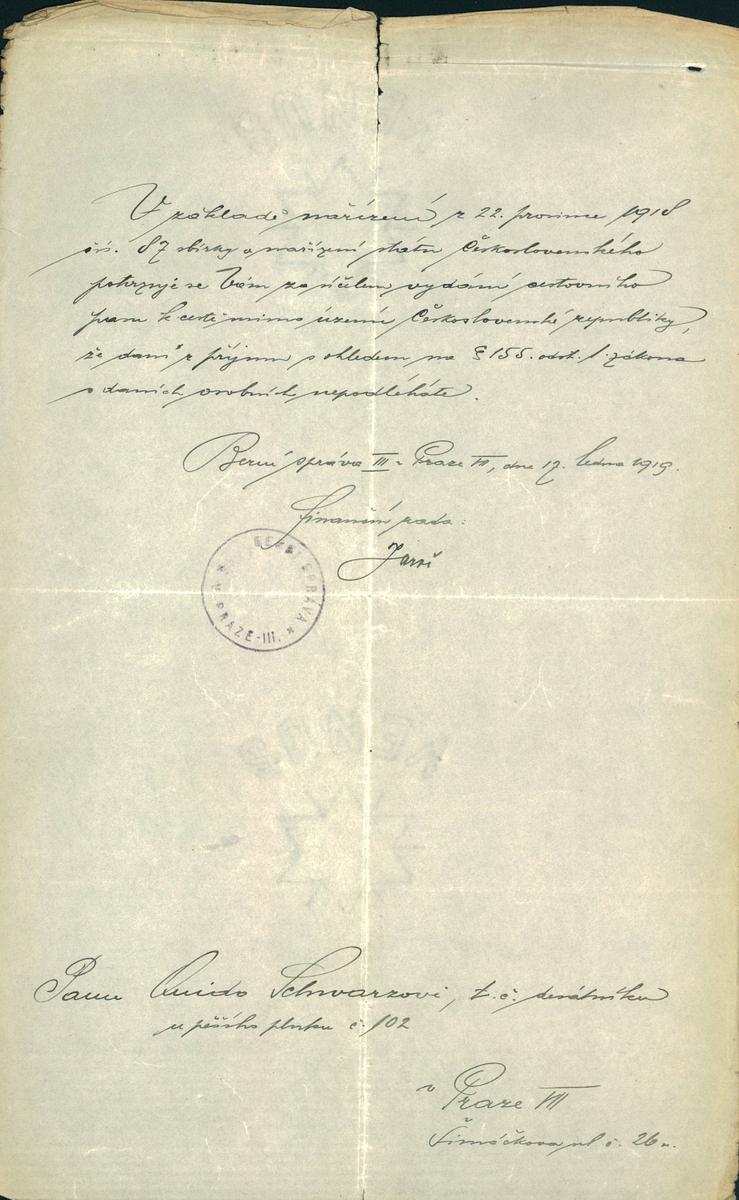 V základě nařízení z 22. prosince 1918
čís. 87 sbírky z. a nařízení státu Československého
potvrzuje se Vám za účelem vydání cestovního
pasu k cestě mimo území Československé republiky,
že dani z příjmu s ohledem na § 155. odst. 1 zákona
o daních osobních nepodléháte.
Berní správa III v Praze VII, dne 17. ledna 1919.
Finanční rada:
BERNÍ SPRÁVA
V PRAZE-III.
Panu Quido Schwarzovi, t. č. desátníku
u pěšího pluku č. 102
v Praze VIII
Šimáčkova ul. č. 26